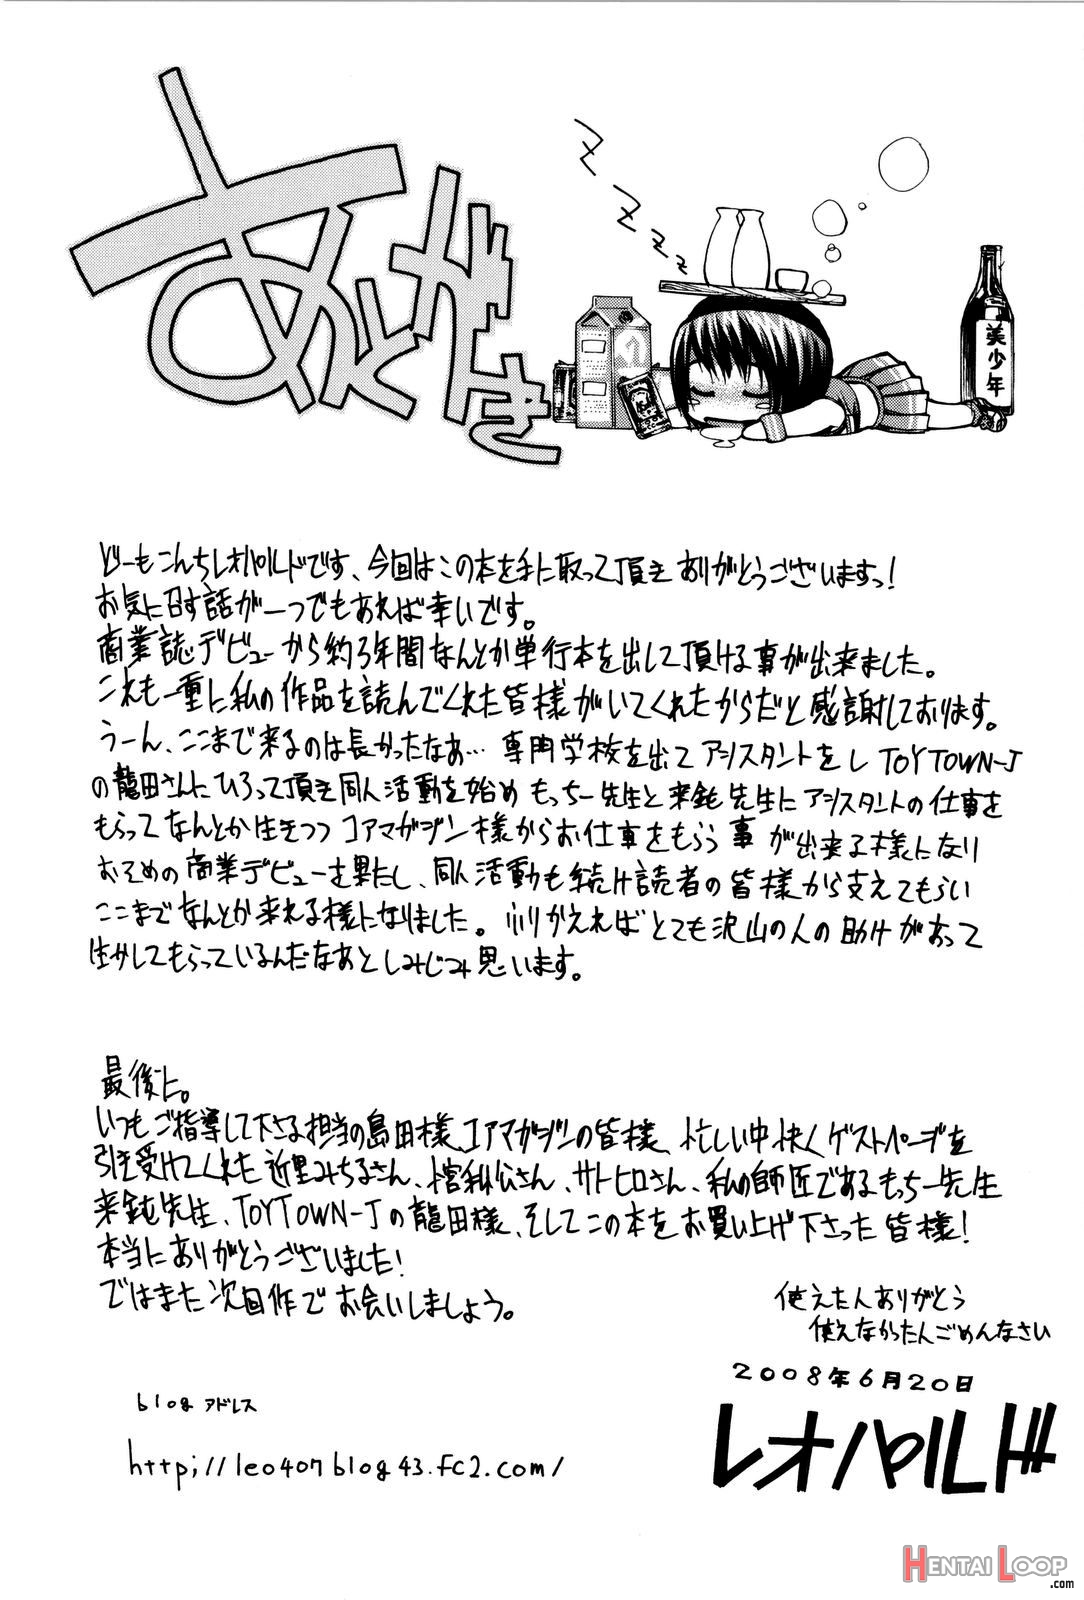 あとがき
zzzzz
美少年
どーもこんちレオパルドです、今回はこの本を手に取って頂き ありがとうございますっ!
お気に召す話が一つでもあれば幸いです。
商業誌デビューから約3年間なんとか単行本を出して頂ける事が出来ました。
これも一重に私の作品を読んでくれた皆様がいてくれたからだと感謝しております。
うーん、ここまで来るのは長かったなあ… 専門学校を出て アシスタントをし TOYTOWN-J
の龍田さんにひろって頂き同人活動を始め もっちー先生と来鈍先生にアシスタントの仕事を
もらって なんとか生きつつ コアマガジン様からお仕事をもらう事が出来る様になり
おそめの商業デビューを果たし、同人活動も続け読者の皆様から支えてもらい
ここまでなんとか来れる様になりました。ふりかえれば とても沢山の人の助けがあって
生かしてもらっているんだなあと しみじみ思います。
最後に。
いつもご指導して下さる担当の島田様、コアマガジンの皆様、忙しい中快くゲストページを
引き受けてくれた 近里みちるさん、 サトヒロさん、私の師匠であるもっちー先生
来鈍先生、TOYTOWN-Jの龍田様、そしてこの本をお買い上げ下さった皆様!
本当にありがとうございました!
ではまた次回作でお会いしましょう。
使えたんありがとう
使えなかったんごめんなさい
2008年6月20日
レオパルド
blog アドレス
http;//leo407blog43.fc2.com/
HENTAI LOOP
.com